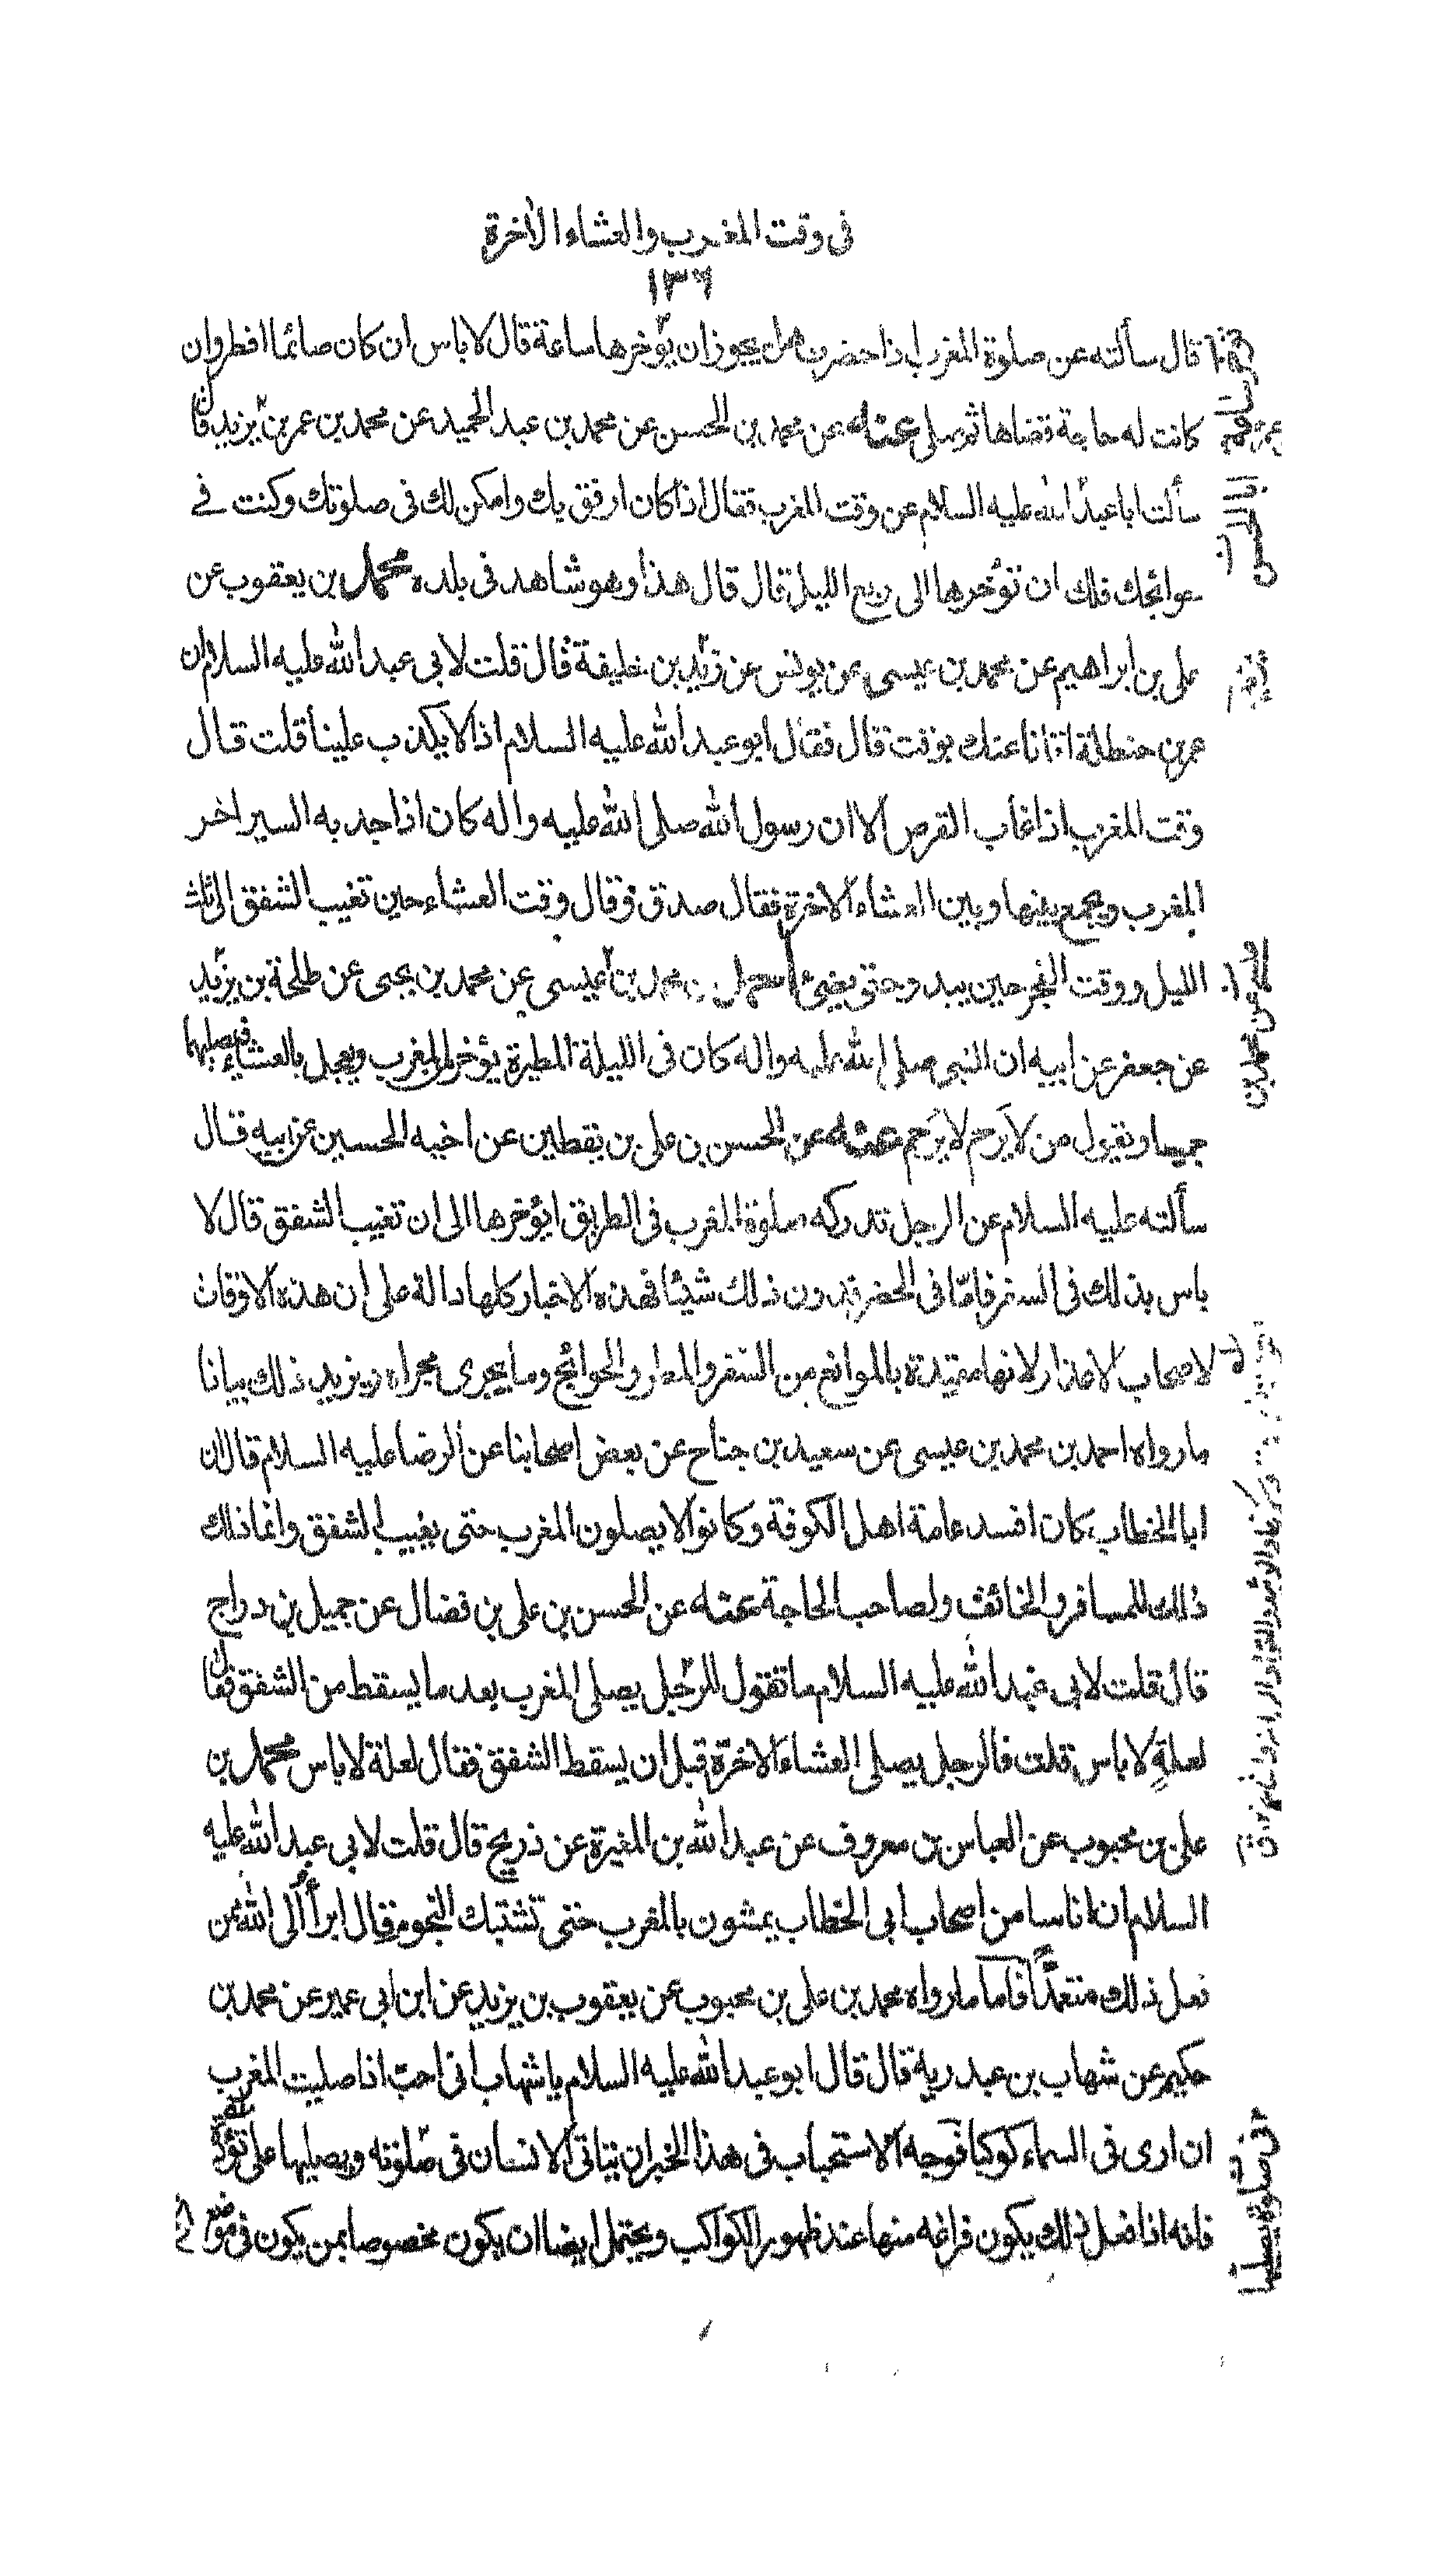 فى وقت المغرب والعشاء الآخرة
١٣٦
قال سألته عن صلوة المغرب اذا حضرت هل يجوز ان يؤخرها ساعة قال لا باس ان كان صائما افطر وان
كانت له حاجة قضاها ثم صلى عنه عن محمد بن الحسن عن محمد بن عبد الحميد عن محمد بن عمر بن يزيد قال
سألت ابا عبد الله عليه السلام عن وقت المغرب فقال اذا كان ارفق بك وامكن لك فى صلوتك وكنت فى
حوائجك فلك ان تؤخرها الى ربع الليل قال قال هذا وهو شاهد فى بلده محمد بن يعقوب عن
على بن ابراهيم عن محمد بن عيسى عن يونس عن يزيد بن خليفة قال قلت لابى عبد الله عليه السلام ان
عمر بن حنظلة اتانا عنك بوقت قال فقال ابو عبد الله عليه السلام اذا لا يكذب علينا قلت قال
وقت المغرب اذا غاب القرص الا ان رسول الله صلى الله عليه واله كان اذا جد به السير اخر
المغرب ويجمع بينها وبين العشاء الاخرة فقال صدق وقال وقت العشاء حين تغيب الشفق الى ثلث
الليل ووقت الفجر حين يبدو حتى يضئ احمد بن محمد بن عيسى عن محمد بن يحيى عن طلحة بن يزيد
عن جعفر عن ابيه ان النبى صلى الله عليه واله كان فى الليلة المطيرة يؤخر المغرب ويعجل بالعشاء فيصليهما
جميعا ويقول من لا يرحم لا يرحم عنه عن الحسن بن على بن يقطين عن اخيه الحسين عن ابيه قال
سألته عليه السلام عن الرجل تدركه صلوة المغرب فى الطريق ايؤخرها الى ان تغيب الشفق قال لا
باس بذلك فى السفر فامّا فى الحضر فدون ذلك شيئا فهذه الاخبار كلها دالة على ان هذه الاوقات
لاصحاب الاعذار لانها مقيدة بالموانع من السفر والمطر والحوائج وما يجرى مجراه ويزيد ذلك بيانا
ما رواه احمد بن محمد بن عيسى عن سعيد بن جناح عن بعض اصحابنا عن الرضا عليه السلام قال ان
ابا الخطاب كان افسد عامة اهل الكوفة وكانوا لا يصلون المغرب حتى يغيب الشفق وانما ذلك
ذلك للمسافر والخائف ولصاحب الحاجة عنه عن الحسن بن على بن فضال عن جميل بن دراج
قال قلت لابى عبد الله عليه السلام ما تقول للرجل يصلى المغرب بعد ما يسقط من الشفق فقال
لعلةٍ لا باس قلت فالرجل يصلى العشاء الاخرة قبل ان يسقط الشفق فقال لعلة لا باس محمد بن
على بن محبوب عن العباس بن معروف عن عبد الله بن المغيرة عن ذريح قال قلت لابى عبد الله عليه
السلام ان اناسا من اصحاب ابى الخطاب يمشون بالمغرب حتى تشتبك النجوم قال ابرأ الى الله ممن
فعل ذلك متعمدًا فاما ما رواه محمد بن على بن محبوب عن يعقوب بن يزيد عن ابن ابى عمير عن محمد بن
حكيم عن شهاب بن عبد ربه قال قال ابو عبد الله عليه السلام يا شهاب انى احبّ اذا صليت المغرب
ان ارى فى السماء كوكبا فوجه الاستحباب فى هذا الخبر ان يتانى الانسان فى صلوته ويصليها على تؤدة
فانه اذا فعل ذلك يكون فراغه منها عند ظهور الكواكب ويحتمل ايضا ان يكون مخصوصا بمن يكون فى موضع